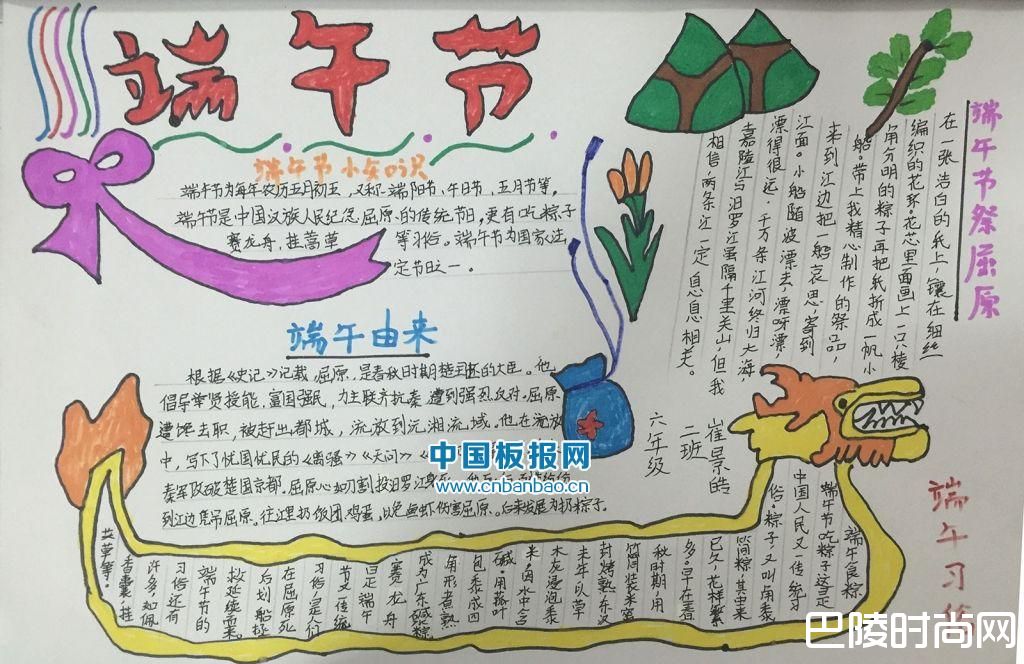 端午节
端午节小知识
端午节为每年农历五月初五,又称端阳节、午日节、五月节等。
端午节是中国汉族人民纪念屈原的传统节日,更有吃粽子
赛龙舟,挂菖草 等习俗。端午节为国家法
定节日之一。
端午由来
根据《史记》记载,屈原,是春秋时期楚怀王的大臣。他
倡导举贤授能,富国强民,力主联齐抗秦,遭到强烈反对。屈原
遭馋去职,被赶出都城,流放到沅湘流域。他在流放
中,写下了忧国忧民的《离骚》《天问》
秦军攻破楚国京都,屈原心如刀割投汨罗江
到江边凭吊屈原。往江里扔饭团鸡蛋,以免鱼虾伤害屈原。后来发展为扔粽子。
中国板报网
www.cnbanbao.cn
端午节祭屈原
在一张洁白的纸上,镶在细丝
编织的花环。花芯里面画上一只棱
角分明的粽子再把纸折成一帆小
船。带上我精心制作的祭品,
来到江边把一船哀思,寄到
江面。小船随波漂去,漂呀漂,
漂得很远,千万条江河终归大海,
嘉陵江与汨罗江虽隔千里关山,但我
相信,两条江一定息息相关。
崔景皓
二班
六年级
端午习俗
端午食粽
端午节吃粽子这是
中国人民又一传统习
俗。粽子,又叫角黍
筒粽,其由来
已久,花样繁
多。早在春
秋时期,用
筒筒装米密
封烤熟,东汉
末年以草
木灰浸泡黍
米,因水中含
碱,用菰叶
包黍成四
角形,煮熟
成为广东碱粽
赛龙舟
曰正端午
节又一传统
习俗,是人们
在屈原死
后划船拯
救延续而来。
端午节的
习俗还有
许多,如佩
香囊,挂
艾草等。
巴陵时尚网